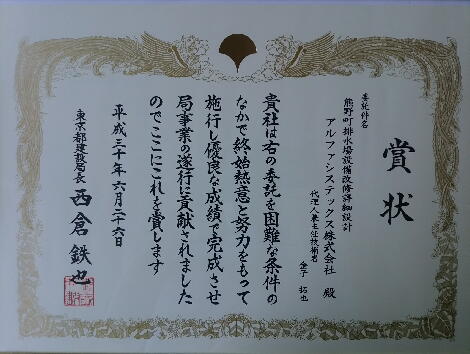 賞状
委託件名
熊野町排水場設備改修詳細設計
アルファシステックス株式会社 殿
代理人兼主任技術者
金子 拓也
貴社は右の委託を困難な条件の
なかで終始熱意と努力をもって
施行し優良な成績で完成させ
局事業の遂行に貢献されました
のでここにこれを賞します
平成三十年六月二十六日
東京都建設局長 西倉 鉄也